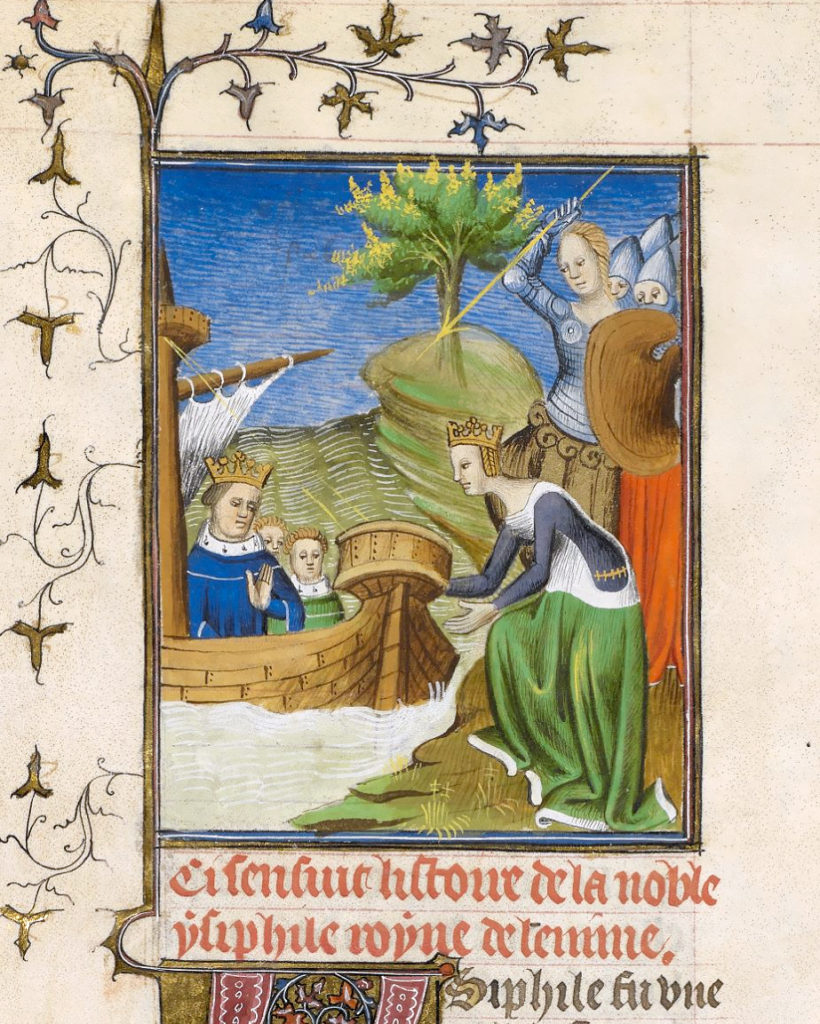 Ci sensuit listoire de la noble
ysiphile royne de lemme.
Siphile fu vne